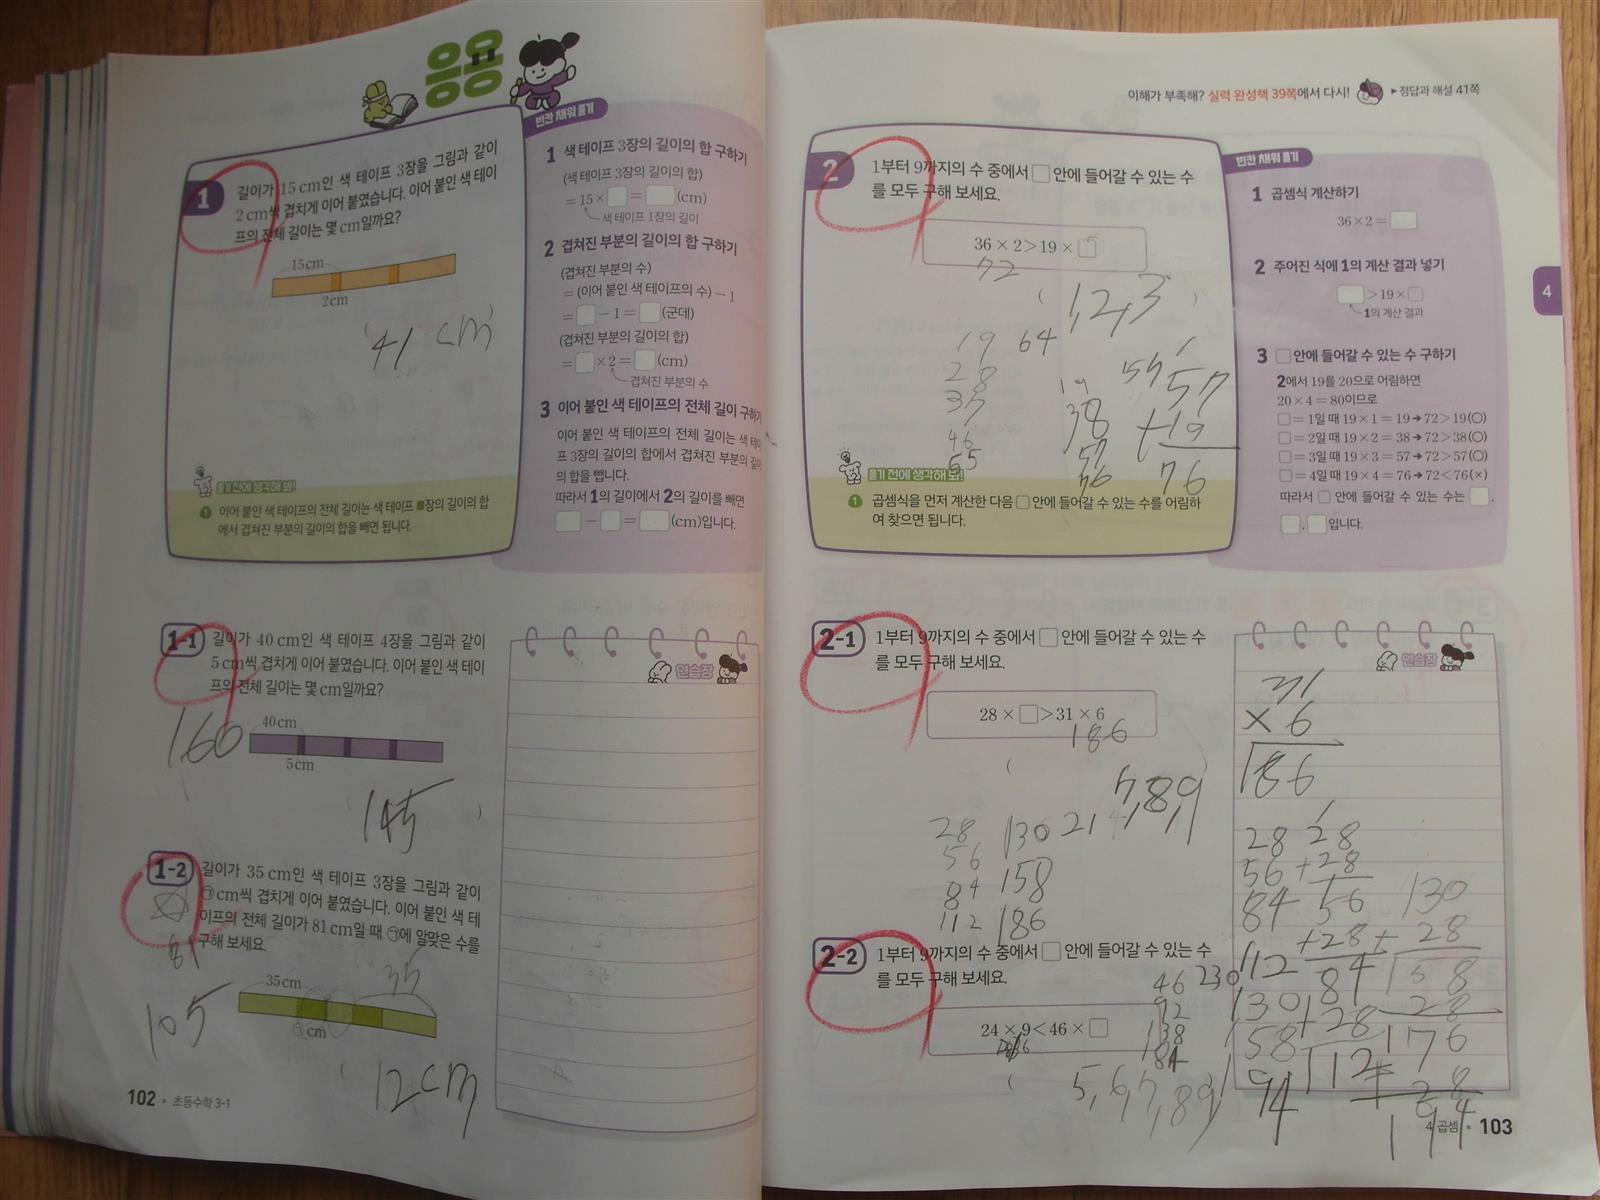 응용
1
길이가 15 cm인 색 테이프 3장을 그림과 같이
2 cm씩 겹치게 이어 붙였습니다. 이어 붙인 색 테이
프의 전체 길이는 몇 cm일까요?
15 cm
2 cm
41 cm
풀기 전에 생각해 봐!
1 이어 붙인 색 테이프의 전체 길이는 색 테이프 ■장의 길이의 합
에서 겹쳐진 부분의 길이의 합을 빼면 됩니다.
빈칸 채워 풀기
1 색 테이프 3장의 길이의 합 구하기
(색 테이프 3장의 길이의 합)
= 15 × □ = □ (cm)
색 테이프 1장의 길이
2 겹쳐진 부분의 길이의 합 구하기
(겹쳐진 부분의 수)
= (이어 붙인 색 테이프의 수) − 1
= □ − 1 = □ (군데)
(겹쳐진 부분의 길이의 합)
= □ × 2 = □ (cm)
겹쳐진 부분의 수
3 이어 붙인 색 테이프의 전체 길이 구하기
이어 붙인 색 테이프의 전체 길이는 색 테이
프 3장의 길이의 합에서 겹쳐진 부분의 길이
의 합을 뺍니다.
따라서 1의 길이에서 2의 길이를 빼면
□ − □ = □ (cm)입니다.
1-1
길이가 40 cm인 색 테이프 4장을 그림과 같이
5 cm씩 겹치게 이어 붙였습니다. 이어 붙인 색 테이
프의 전체 길이는 몇 cm일까요?
160
40 cm
5 cm
145
연습장
1-2
길이가 35 cm인 색 테이프 3장을 그림과 같이
㉠ cm씩 겹치게 이어 붙였습니다. 이어 붙인 색 테
이프의 전체 길이가 81 cm일 때 ㉠에 알맞은 수를
구해 보세요.
81
35 cm
35
105
㉠ cm
12cm
102 • 초등수학 3-1
이해가 부족해? 실력 완성책 39쪽에서 다시! ▸정답과 해설 41쪽
2
1부터 9까지의 수 중에서 □ 안에 들어갈 수 있는 수
를 모두 구해 보세요.
36 × 2 > 19 × □
72
( 1,2,3 )
19 64
28
37
46
55
19
38
57
76
57
+19
76
풀기 전에 생각해 봐!
1 곱셈식을 먼저 계산한 다음 □ 안에 들어갈 수 있는 수를 어림하
여 찾으면 됩니다.
빈칸 채워 풀기
1 곱셈식 계산하기
36 × 2 = □
2 주어진 식에 1의 계산 결과 넣기
□ > 19 × □
1의 계산 결과
3 □ 안에 들어갈 수 있는 수 구하기
2에서 19를 20으로 어림하면
20 × 4 = 80이므로
□ = 1일 때 19 × 1 = 19 → 72 > 19 (○)
□ = 2일 때 19 × 2 = 38 → 72 > 38 (○)
□ = 3일 때 19 × 3 = 57 → 72 > 57 (○)
□ = 4일 때 19 × 4 = 76 → 72 < 76 (×)
따라서 □ 안에 들어갈 수 있는 수는 □,
□, □입니다.
4
2-1
1부터 9까지의 수 중에서 □ 안에 들어갈 수 있는 수
를 모두 구해 보세요.
28 × □ > 31 × 6
186
( 7,8,9 )
28 130 21
56 158
84 186
112
연습장
31
× 6
186
28 28
56 +28
84 56 130
+28 + 28
112 84 158
130 +28 28
158 112 176
28
194 194
2-2
1부터 9까지의 수 중에서 □ 안에 들어갈 수 있는 수
를 모두 구해 보세요.
24 × 9 < 46 × □
46 230
92
138
184
( 5,6,7,8,9 )
4. 곱셈 • 103